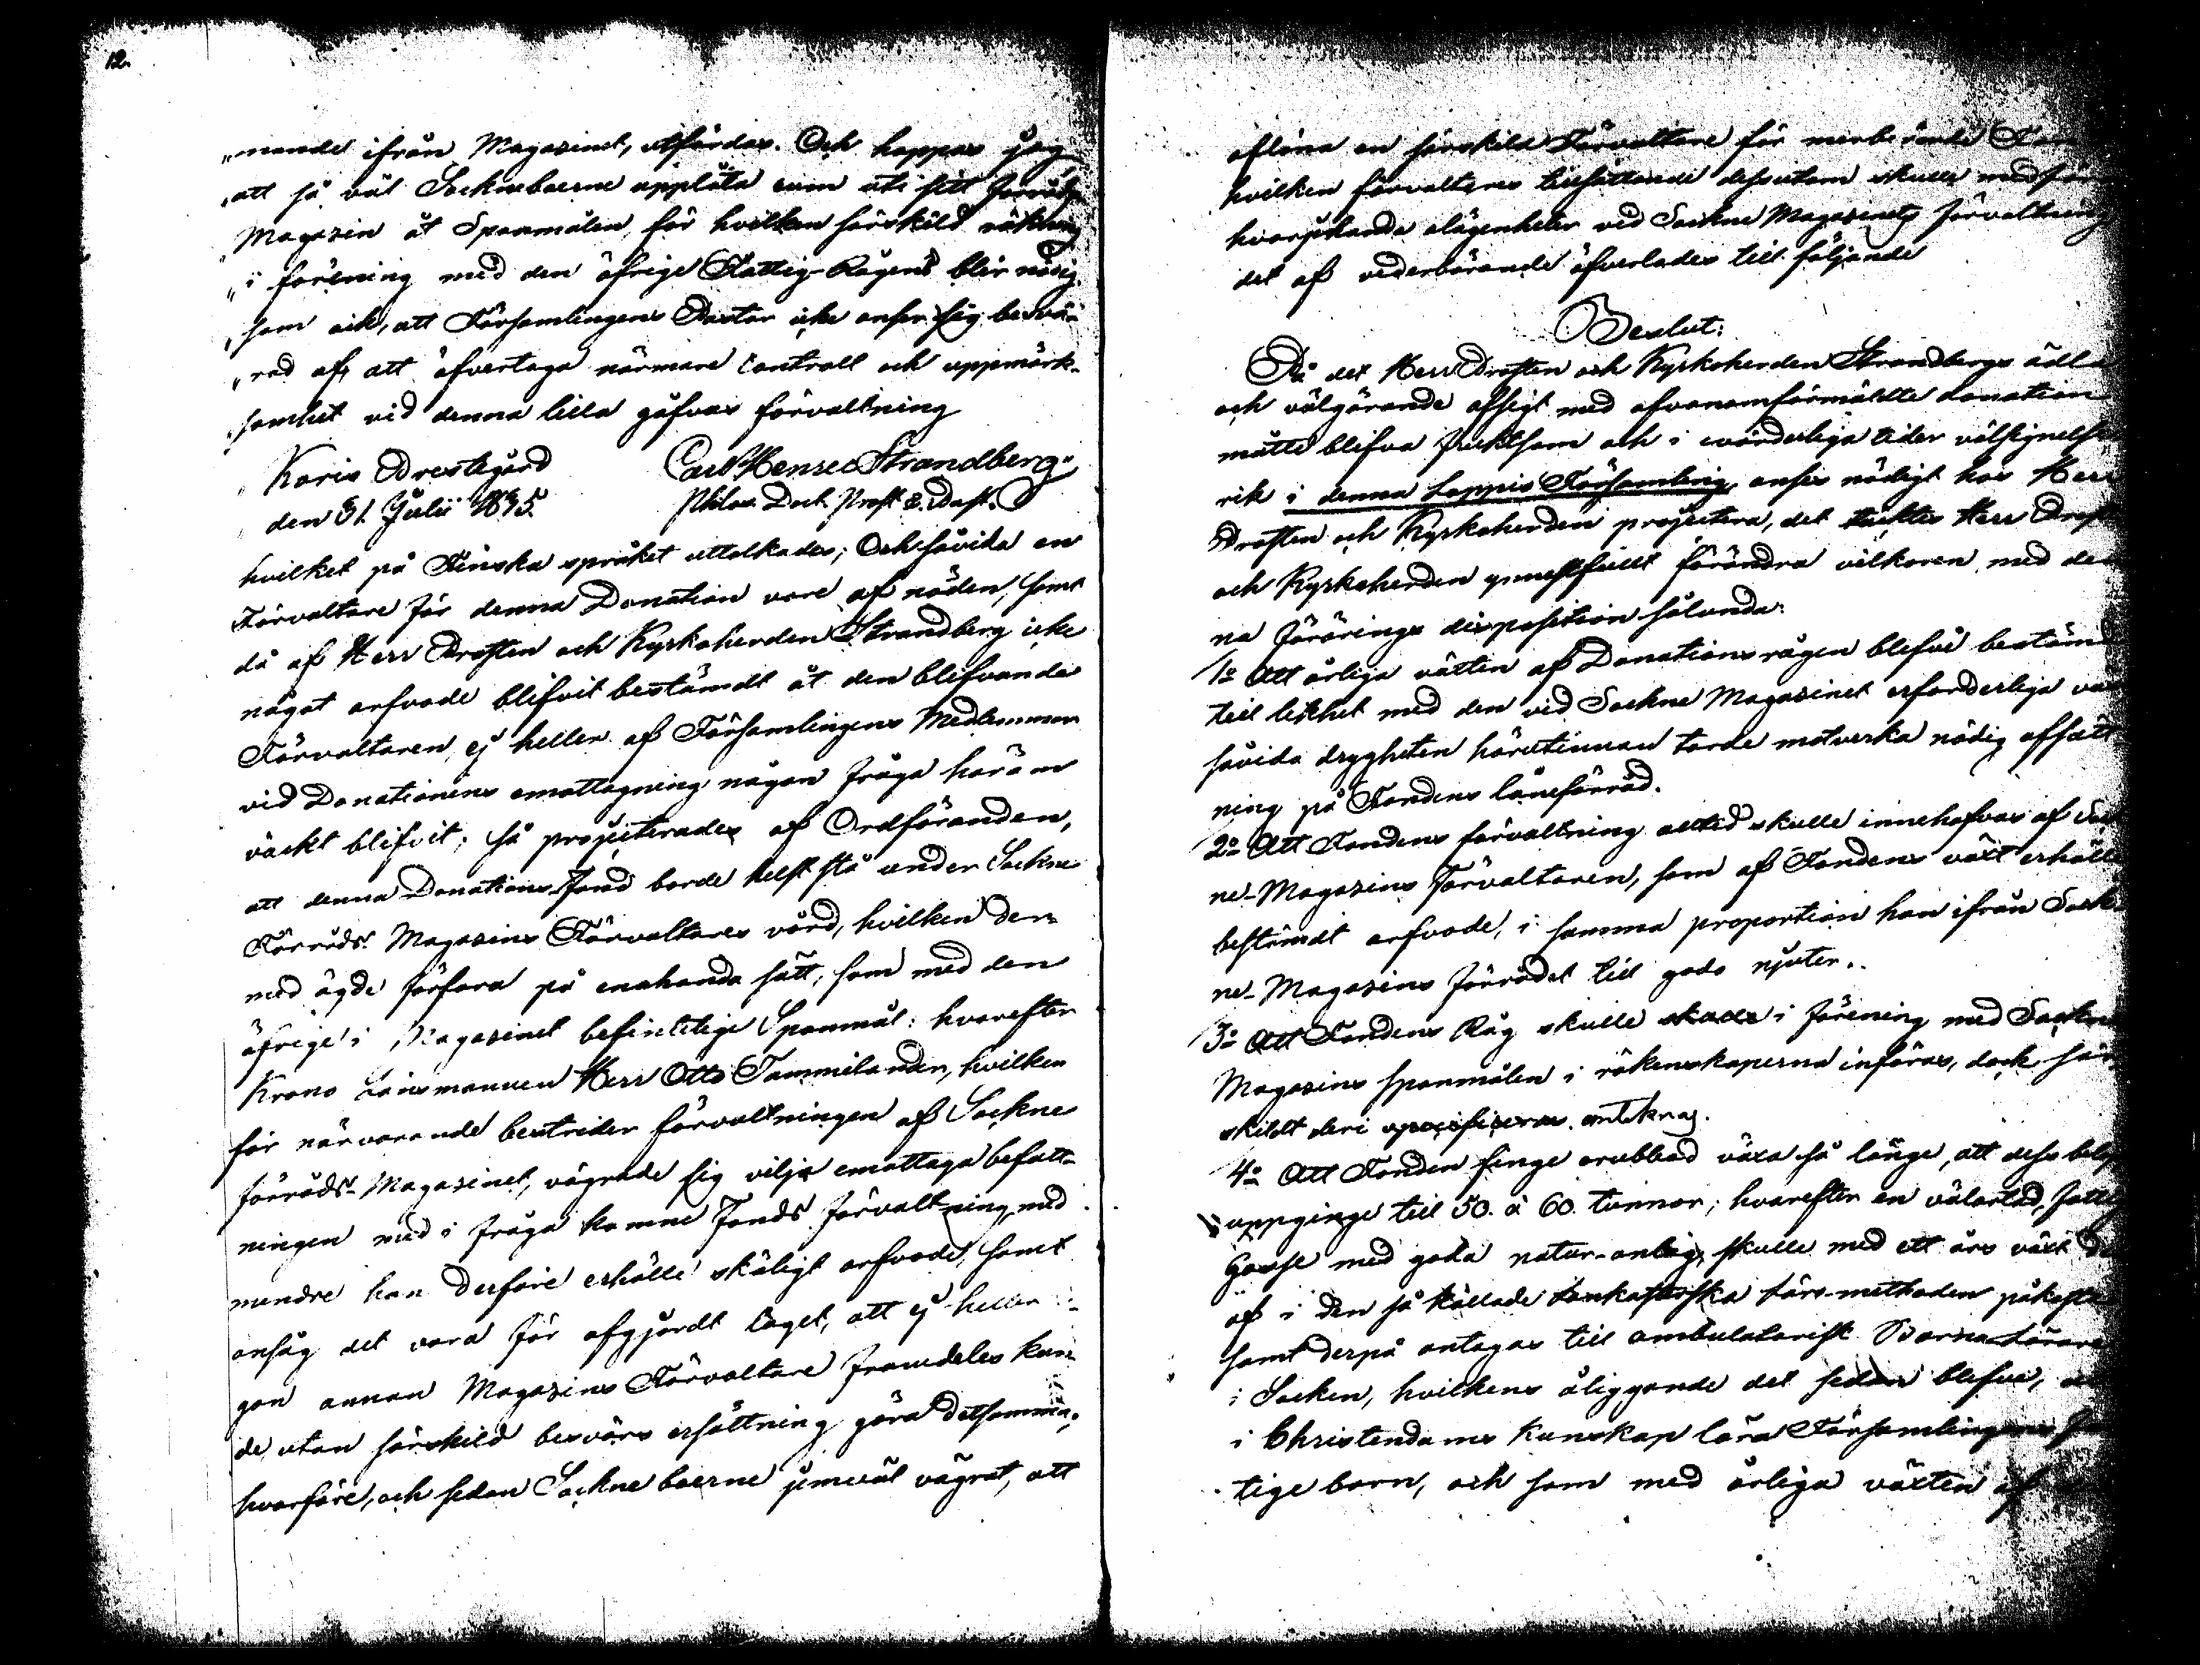 12.
„mande ifrån Magasinet, utfärdas. Och hoppas jag,
„att så väl Sockneboerne upplåta rum uti sitt Förråds
Magasin åt Spanmålen, för hvilken särskild räkning
„i förening med den öfrige Fattig-Rågens blir nödig,
„som ock, att Församlingens Pastor icke anser sig besvä-
„rad af, att öfvertaga närmare Controll och uppmärk-
„samhet vid denna lilla gåfvas förvaltning
Karis Prestegård Carl Henric Strandberg"
den 31 Julii 1835. Philos. Doct. Prost & Past.
hvilket på Finska språket uttolkades; Och såvida en
Förvaltare för denna Donation vore af nöden, samt
då af Herr Prosten och Kyrkoherden Strandberg icke
något arfvode blifvit bestämdt åt den blifvande
Förvaltaren, ej heller af Församlingens Medlemmar
vid Donationens emottagning någon fråga härom
väckt blifvit; så projecterades af Ordföranden,
att denna Donations Fond borde helst stå under Sockne
Förråds Magasins Förvaltares vård, hvilken der-
med ägde förfara på enahanda sätt, som med den
öfrige i Magasinet befintelige Spanmål: hvarefter
Krono Länsmannen Herr Otto Tammelander, hvilken
för närvarande bestrider förvaltningen af Sockne
förråds-Magasinet, vägrade sig vilja emottaga befatt-
ningen med i fråga komne Fonds förvaltning, med
mindre han derföre erhölle skäligt arfvode, samt
ansåg det vara för afgjordt taget, att ej heller
gon annan Magasins Förvaltare framdeles kun-
de utan särskild besvärs ersättning göra detsamma;
hvarföre, och sedan Sockneboerne jemväl vägrat, att
aflöna en särskild Förvaltare för menberörde
hvilken förvaltares tillsättande dessutom skulle medföra
hvarjehanda olägenheter vid Sockne Magasinets förvaltning
det af vederbörande öfverlades till följande
Beslut:
På det Herr Prosten och Kyrkoherden Strandbergs ädla
och välgörande afsigt med ofvananförmäldte donation
måtte blifva fruktsam och i evärderliga tider välsignelse
rik i denna Loppis Församling, anses nödigt hos Herr
Prosten och Kyrkoherden projectera, det täcktes Herr Prosten
och Kyrkoherden ynnestfullt förändra vilkoren med den
na förärings disposition sålunda:
1o Att årliga växten af Donations rågen blefve bestämd
till likhet med den vid Sockne Magasinet erforderliga
såvida drygheten härutinnan torde motverka nödig afsätt
ning på Fondens låneförråd.
2o Att Fondens förvaltning alltid skulle innehafvas af Sock
ne-Magasins Förvaltaren, som af Fondens växt erhölle
bestämdt arfvode, i samma proportion han ifrån Sock
ne-Magasins förrådet till godo njuter.
3o Att Fondens Råg skulle skulle i förening med Sockne
Magasins spanmålen i räkenskaperna införas, dock sär
skildt deri specificeras. antecknas.
4o Att Fonden finge orubbad växa så länge, att dess belopp
uppginge till 50. à 60. tunnor; hvarefter en välartad, fattig
Gosse med goda natur-anlag, skulle med ett års växt
af i den så kallade Lankasterska läro-methoden påkostas
samt derpå antagas till ambulatorisk Barna Lärare
i Socken, hvilkens åliggande det sedan blefve,
i Christendoms kunskap lära Församlingens
tige barn, och som med årliga växten af